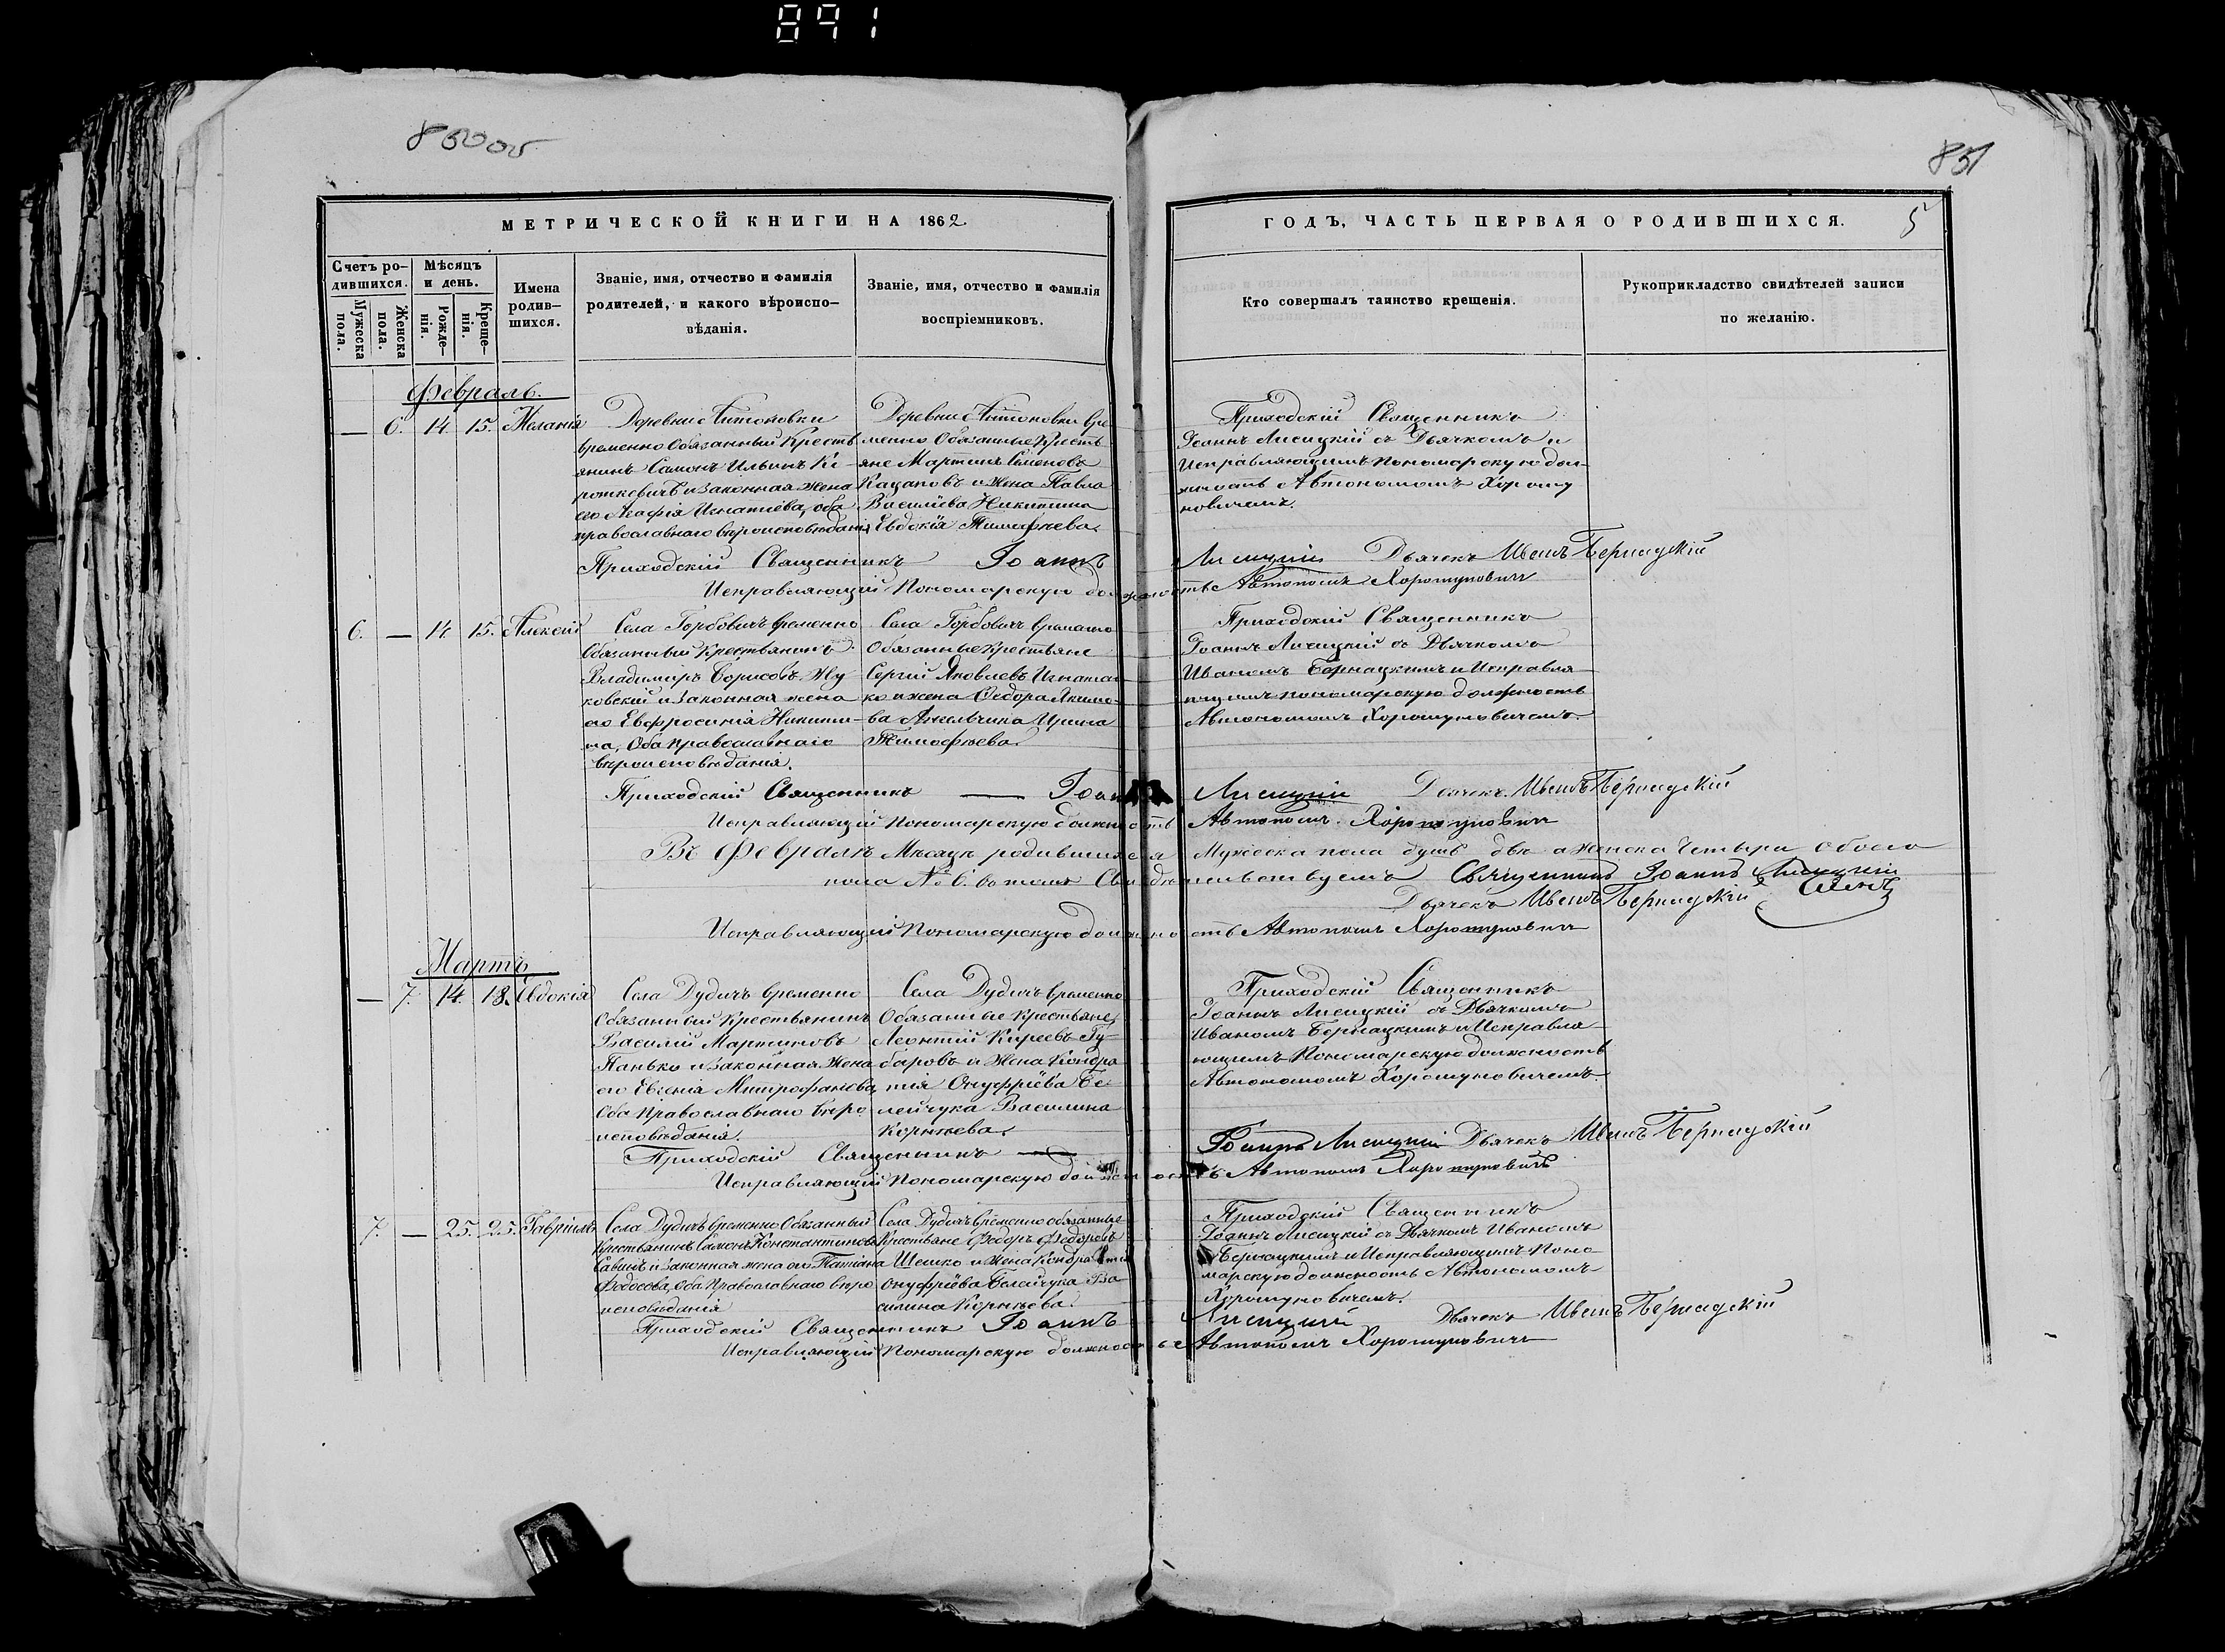 891
851
МЕТРИЧЕСКОЙ КНИГИ НА 1862
ГОДЪ, ЧАСТЬ ПЕРВАЯ О РОДИВШИХСЯ.
5
Счетъ ро-
дившихся.
Мужеска
пола.
Женска
пола.
Мѣсяцъ
и день.
Рожде-
нія.
Креще-
нія.
Имена
родив-
шихся.
Званіе, имя, отчество и фамилія
родителей, и какого вѣроиспо-
вѣданія.
Званіе, имя, отчество и фамилія
воспріемниковъ.
Кто совершалъ таинство крещенія.
Рукоприкладство свидѣтелей записи
по желанію.
Февраль.
— 6. 14. 15. Меланія
Деревни Антоновки
временно Обязанный Кресть
янинъ Самонъ Ильинъ Ки-
роткевичъ и законная жена
его Агафія Игнатіева, оба
православнаго вѣроисповѣданія
Деревни Антоновки вре
менно Обязанные Кресть
яне Мартинъ Семеновъ
Кацаповъ и жена Павла
Василіева Никитина
Евдокія Тимофѣева.
Приходскій Священникъ
Іоаннъ Лисицкій съ Дьячкомъ и
Исправляющимъ пономарскую дол-
жность Автономомъ Хорошу
новичемъ.
Приходскій Священникъ Іоаннъ Лисицкій Дьячекъ Иванъ Бернацкій
Исправляющій Пономарскую должность Автономъ Хорошуновичъ
6. — 14. 15. Алексій
Села Горбовичъ временно
Обязанный Крестьянинъ
Владимиръ Борисовъ Жу
ковскій и законная жена
его Евфросинія Никити-
на, Оба православнаго
вѣроисповѣданія.
Села Горбовичъ временно
Обязанные Крестьяне
Сергій Яковлевъ Игнатен
ко и жена Федора Якимо-
ва Анельчика Ирина
Тимофѣева.
Приходскій Священникъ
Іоаннъ Лисицкій съ Дьячкомъ
Иваномъ Бернацкимъ и Исправля
ющимъ пономарскую должность
Автономомъ Хорошуновичемъ.
Приходскій Священникъ — Іоаннъ Лисицкій Дьячекъ Иванъ Бернацкій
Исправляющій Пономарскую должность Автономъ Хорошуновичъ
Въ Февралѣ Мѣсяцѣ родившихся Мужеска пола душъ двѣ а женска Четыри обоего
пола № 6. во томъ Свидѣтельствуемъ Священникъ Іоаннъ Лисицкій
Дьячекъ Иванъ Бернацкій
Исправляющій Пономарскую должность Автономъ Хорошуновичъ
Мартъ
— 7. 14. 18. Евдокія
Села Дудичъ временно
Обязанный Крестьянинъ
Василій Мартиновъ
Панько и Законная Жена
его Евгенія Митрофанова,
Оба Православнаго вѣро
исповѣданія.
Села Дудичъ временно
Обязанные Крестьяне
Леонтій Киреевъ Гу-
баровъ и Жена Кондра
тія Онуфріева Бе-
лейчука Василина
Корнѣева.
Приходскій Священникъ
Іоаннъ Лисицкій съ Дьячкомъ
Иваномъ Бернацкимъ и Исправля-
ющимъ Пономарскую должность
Автономомъ Хорошуновичемъ.
Приходскій Священникъ — Іоаннъ Лисицкій Дьячекъ Иванъ Бернацкій
Исправляющій Пономарскую должность Автономъ Хорошуновичъ
7. — 25. 25. Гавріилъ
Села Дудичъ временно Обязанный
Крестьянинъ Самонъ Константиновъ
Савинъ и законная жена его Татіана
Федосова, Оба Православнаго вѣро
исповѣданія
Села Дудичъ временно обязанные
Крестьяне Федоръ Федоровъ
Шешко и жена Кондратія
Онуфріева Белейчука Ва
силина Корнѣева.
Приходскій Священникъ
Іоаннъ Лисицкій съ Дьячкомъ Иваномъ
Бернацкимъ и Исправляющимъ Поно-
марскую должность Автономомъ
Хорошуновичемъ.
Приходскій Священникъ Іоаннъ Лисицкій Дьячекъ Иванъ Бернадскій
Исправляющій Пономарскую должность Автономъ Хорошуновичъ